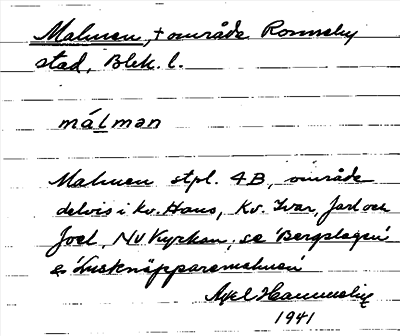 Malmen, + område Ronneby
stad, Blek. l.
málman
Malmen stpl. 4B, område
delvis i kv. Hans, Kv. Ivar, Jarl och
Joel, NV Kyrkan; se 'Bergslagen'
o 'Lusknäpparemalmen'
Axel
1941